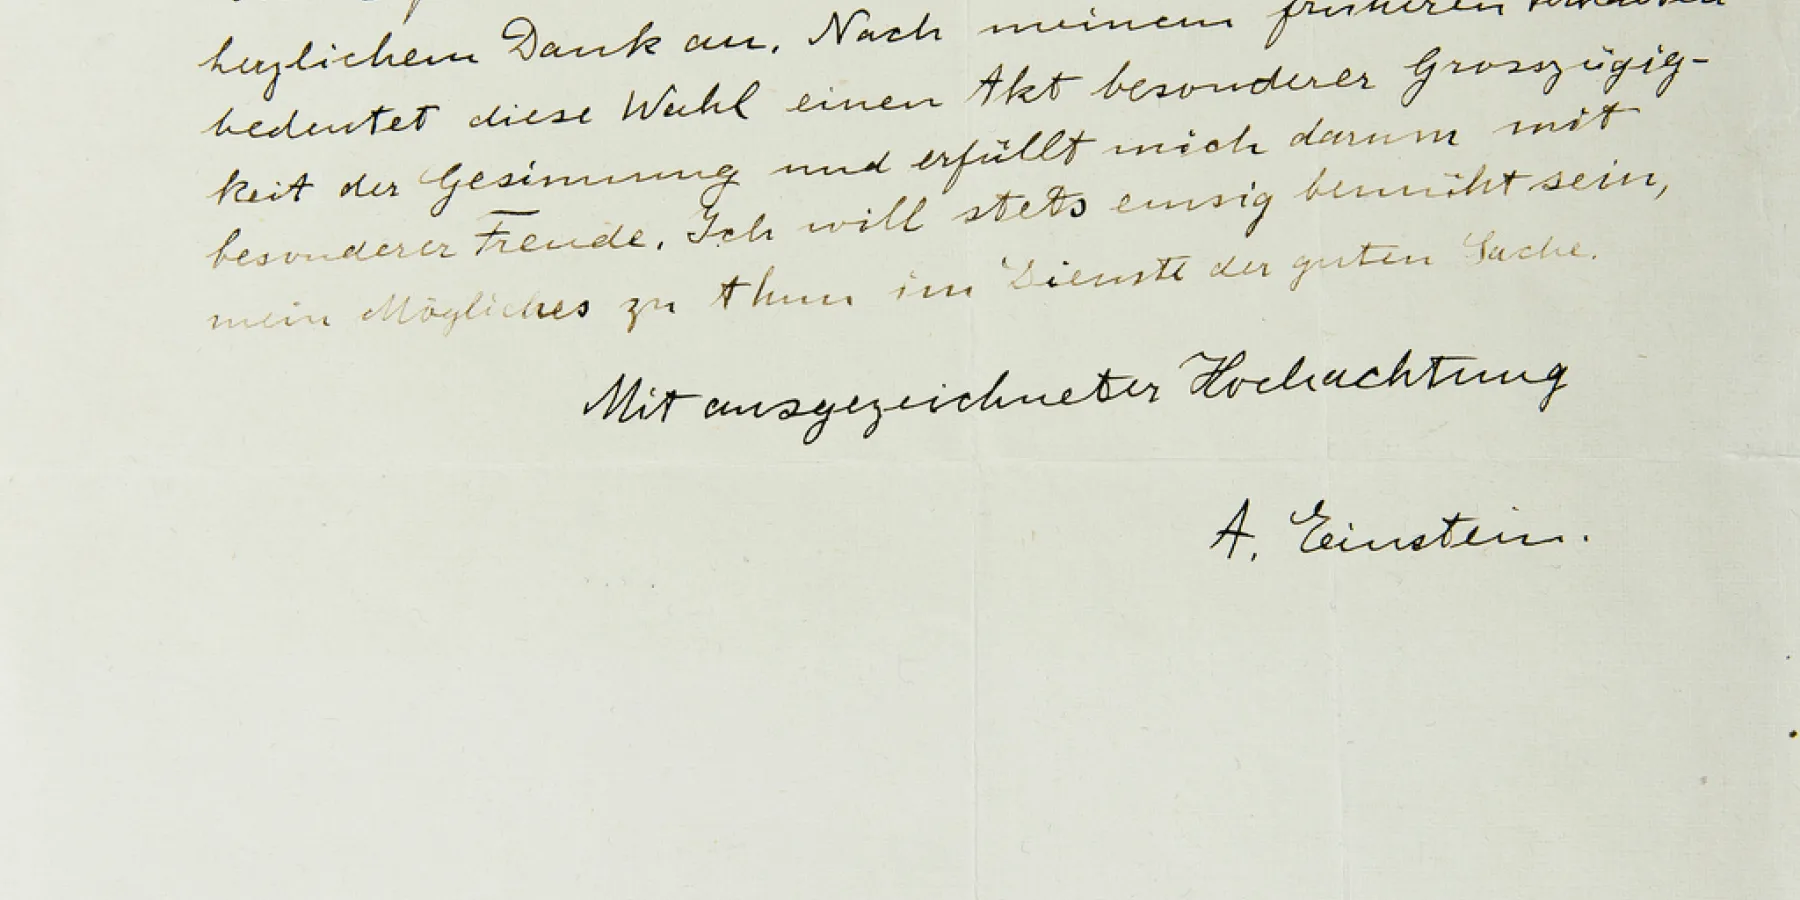 herzlichem Dank an. Nach meinem früheren Verhalten
bedeutet diese Wahl einen Akt besonderer Grosszügig-
keit der Gesinnung und erfüllt mich darum mit
besonderer Freude. Ich will stets emsig bemüht sein,
mein Mögliches zu thun im Dienste der guten Sache.
Mit ausgezeichneter Hochachtung
A. Einstein.